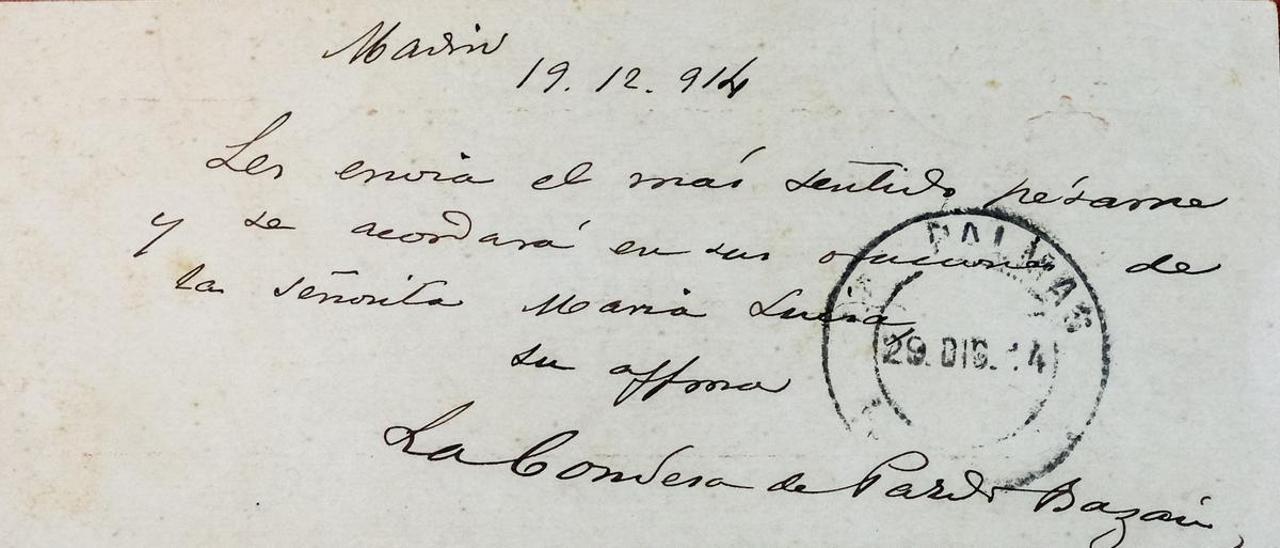 Madrid
19. 12. 914
Les envia el más sentido pésame
y se acordará en sus oraciones de
la señorita Maria Luisa,
su affma
La Condesa de Pardo Bazán
PALMAS
29. DIC. 14